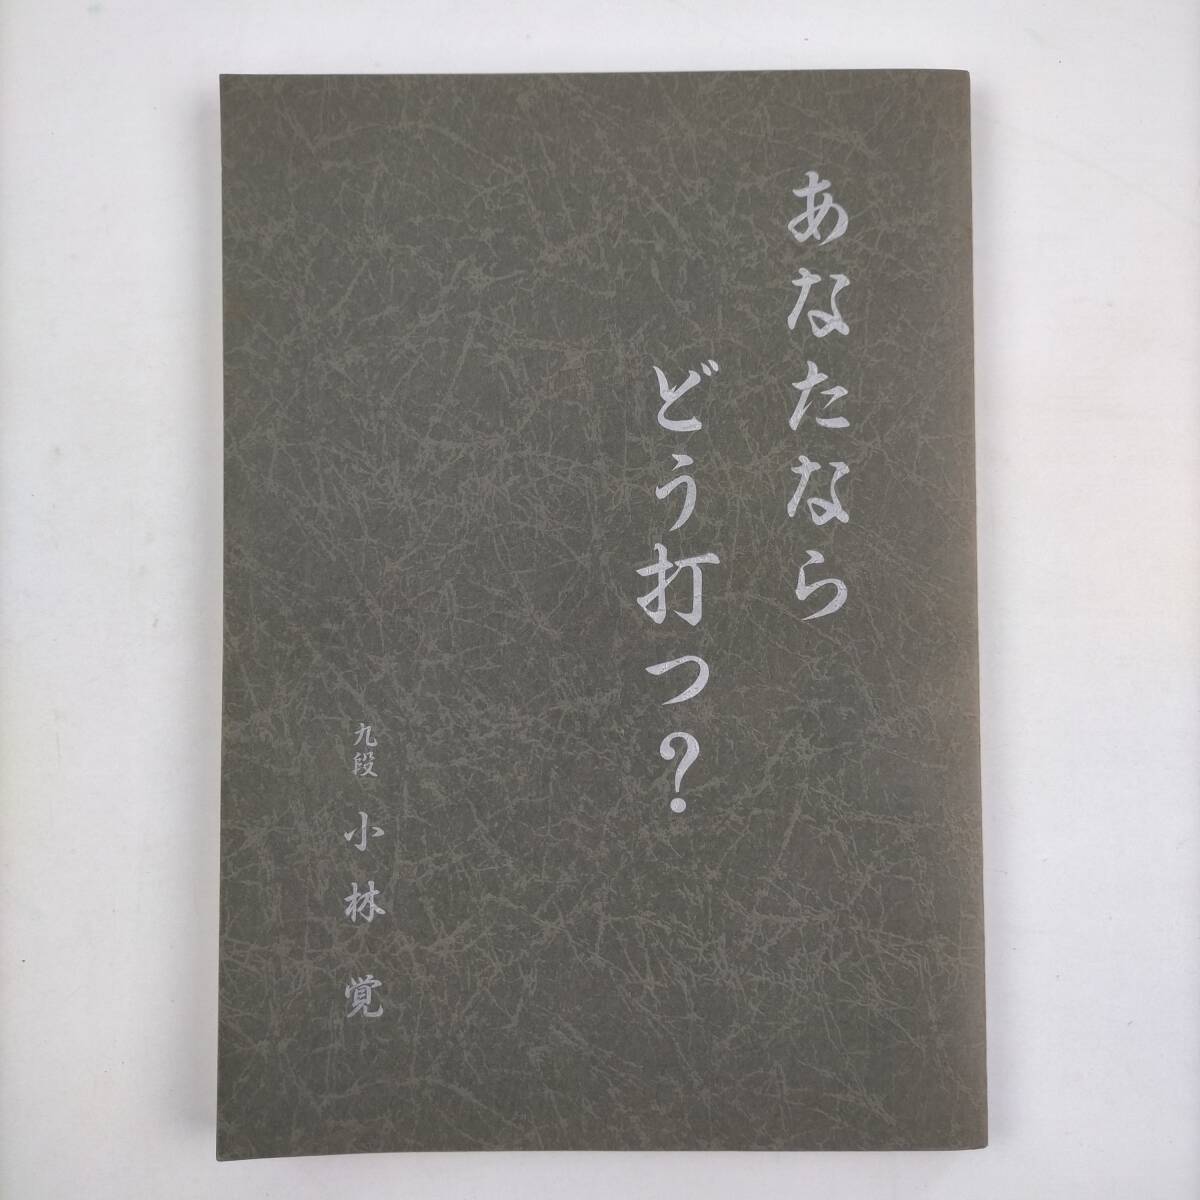 あなたなら
どう打つ？
九段 小林覚